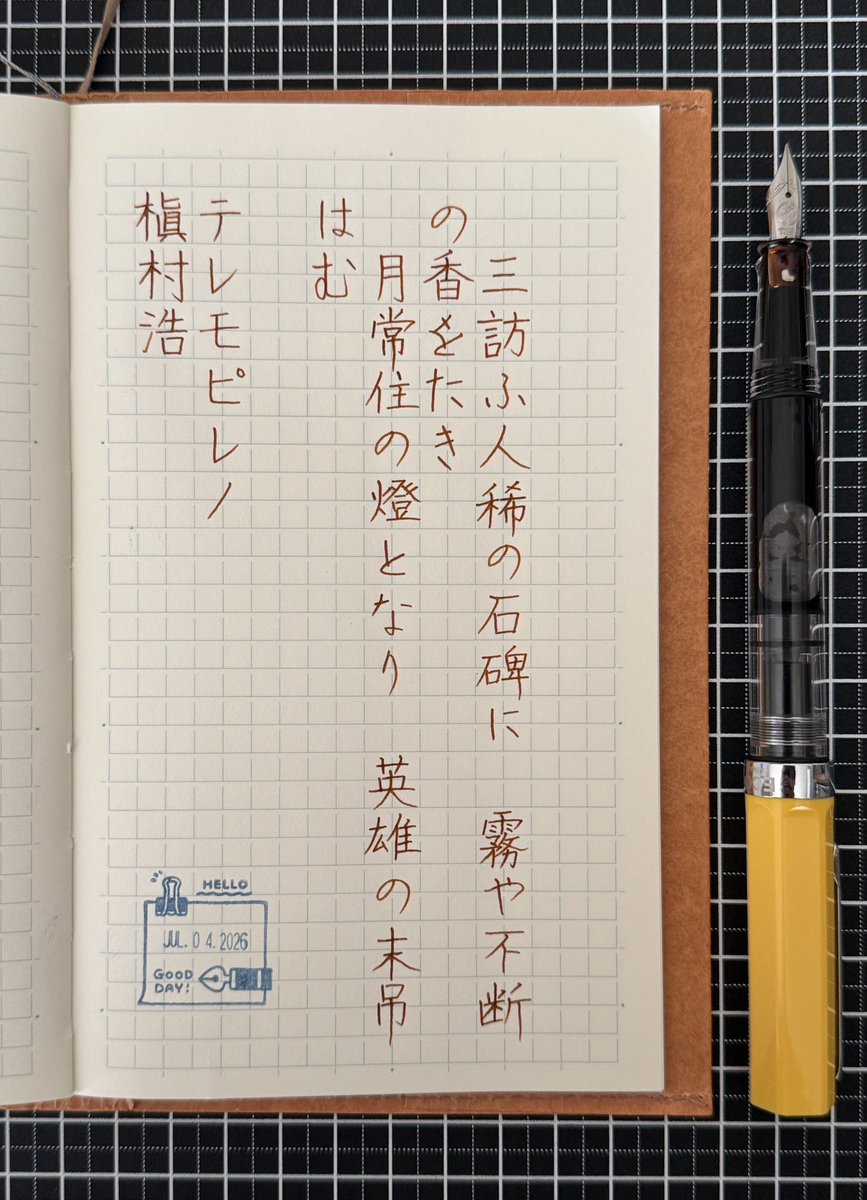 三訪ふ人稀の石碑に　霧や不断
の香をたき
月常住の燈となり　英雄の末吊
はむ
テレモピレノ
槇村浩
HELLO
JUL. 04. 2026
GOOD
DAY!